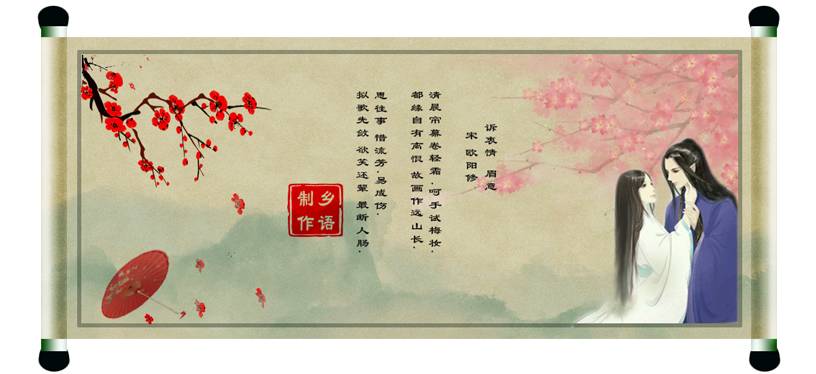 诉衷情 眉意
宋 欧阳修
清晨帘幕卷轻霜，呵手试梅妆。
都缘自有离恨，故画作远山长。
思往事，惜流芳，易成伤。
拟歌先敛，欲笑还颦，最断人肠。
乡语
制作